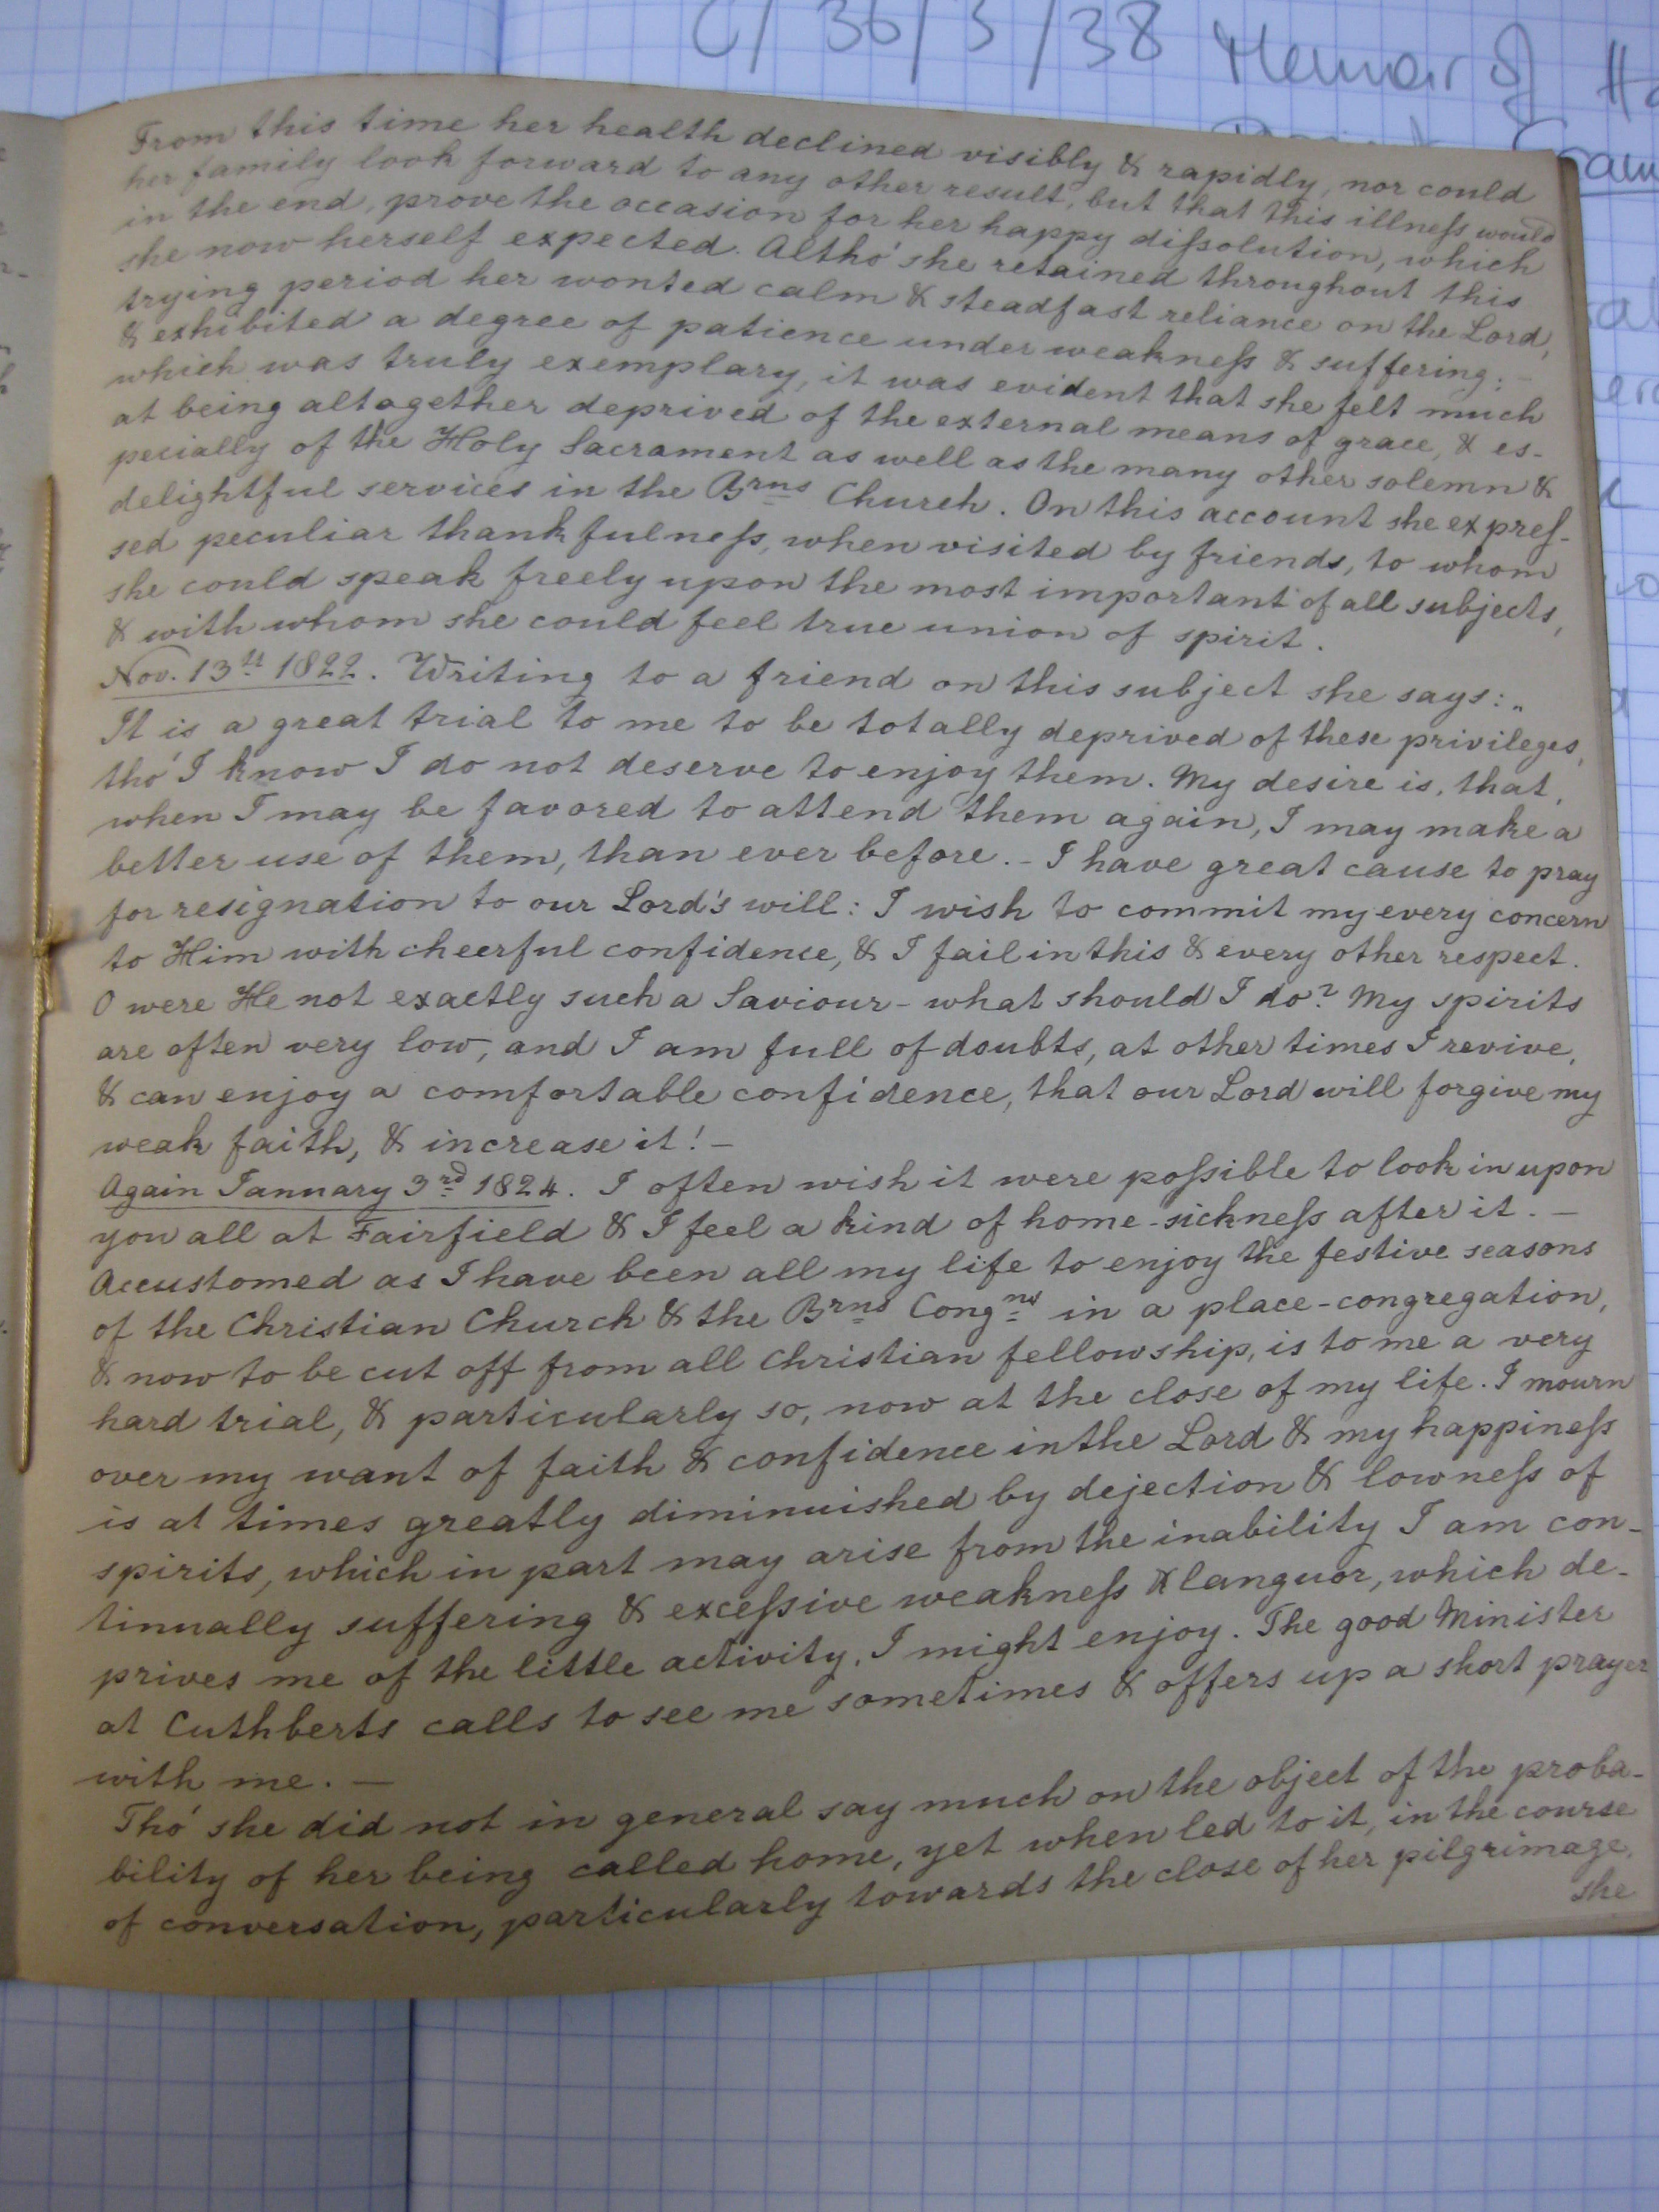 C/36/3/38 Memoir of
From this time her health declined visibly & rapidly, nor could
her family look forward to any other result, but that this illneſs would
in the end, prove the occasion for her happy diſsolution, which
she now herself expected. Altho' she retained throughout this
trying period her wonted calm & steadfast reliance on the Lord,
& exhibited a degree of patience under weakneſs & suffering; –
which was truly exemplary, it was evident that she felt much
at being altogether deprived of the external means of grace, & es-
pecially of the Holy Sacrament as well as the many other solemn &
delightful services in the Brns Church. On this account she expreſ-
sed peculiar thankfulneſs, when visited by friends, to whom
she could speak freely upon the most important of all subjects,
& with whom she could feel true union of spirit.
Nov. 13th 1822. Writing to a friend on this subject she says: „
It is a great trial to me to be totally deprived of these privileges,
tho' I know I do not deserve to enjoy them. My desire is, that,
when I may be favored to attend them again, I may make a
better use of them, than ever before. – I have great cause to pray
for resignation to our Lord's will: I wish to commit my every concern
to Him with cheerful confidence, & I fail in this & every other respect.
O were He not exactly such a Saviour – what should I do? My spirits
are often very low, and I am full of doubts, at other times I revive,
& can enjoy a comfortable confidence, that our Lord will forgive my
weak faith, & increase it! –
Again January 3rd 1824. I often wish it were poſsible to look in upon
you all at Fairfield & I feel a kind of home-sickneſs after it. –
Accustomed as I have been all my life to enjoy the festive seasons
of the Christian Church & the Brns Congns in a place-congregation,
& now to be cut off from all Christian fellowship, is to me a very
hard trial, & particularly so, now at the close of my life. I mourn
over my want of faith & confidence in the Lord & my happineſs
is at times greatly diminuished by dejection & lowneſs of
spirits, which in part may arise from the inability I am con-
tinually suffering & exceſsive weakneſs & languor, which de-
prives me of the little activity, I might enjoy. The good Minister
at Cuthberts calls to see me sometimes & offers up a short prayer
with me. –
Tho' she did not in general say much on the object of the proba-
bility of her being called home, yet when led to it, in the course
of conversation, particularly towards the close of her pilgrimage,
she